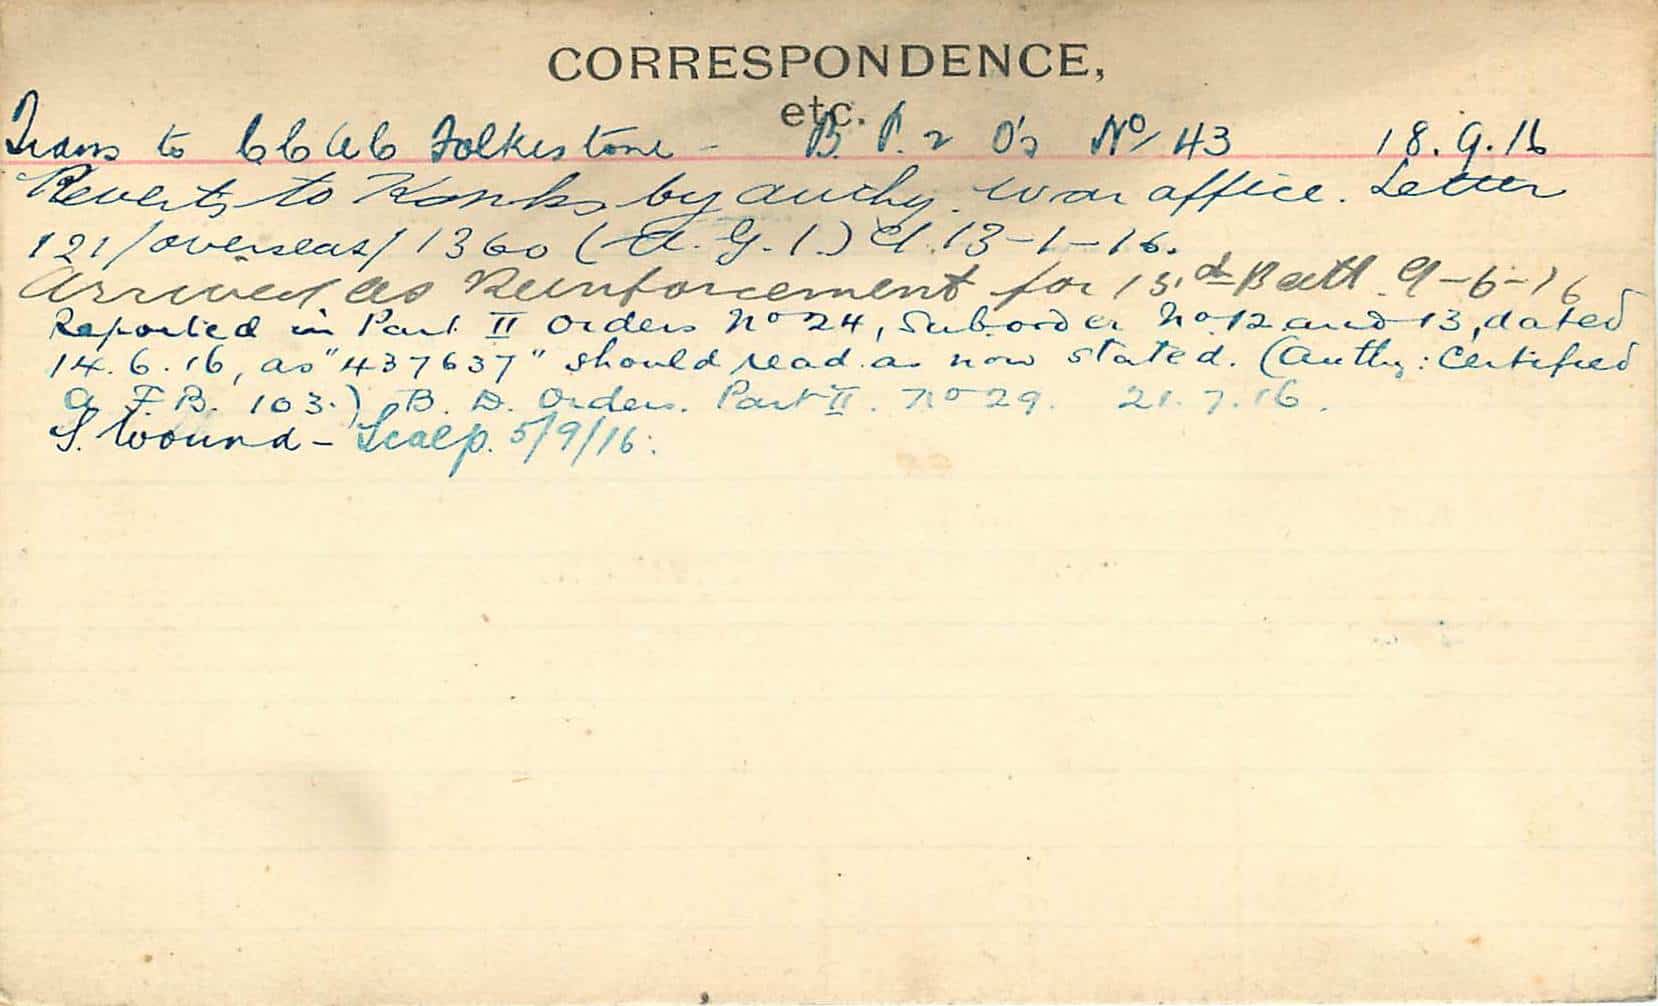 CORRESPONDENCE,
etc.
Trans to CCAC Folkestone - B. P. 2 O's No 43 18.9.16
Reverts to Ranks by authy. war office. Letter
121/overseas/1360 (A.G.1.) d. 13-1-16.
Arrived as Reinforcement for Batt. 9-6-16
Reported in Part II Orders No 24, Suborder No. 12 and 13, dated
14.6.16, as "437637" should read as now stated. (Authy: Certified
A.F.B. 103.) B.D. Orders. Part II. No 29. 21.7.16.
S. Wound - Scalp. 5/9/16.